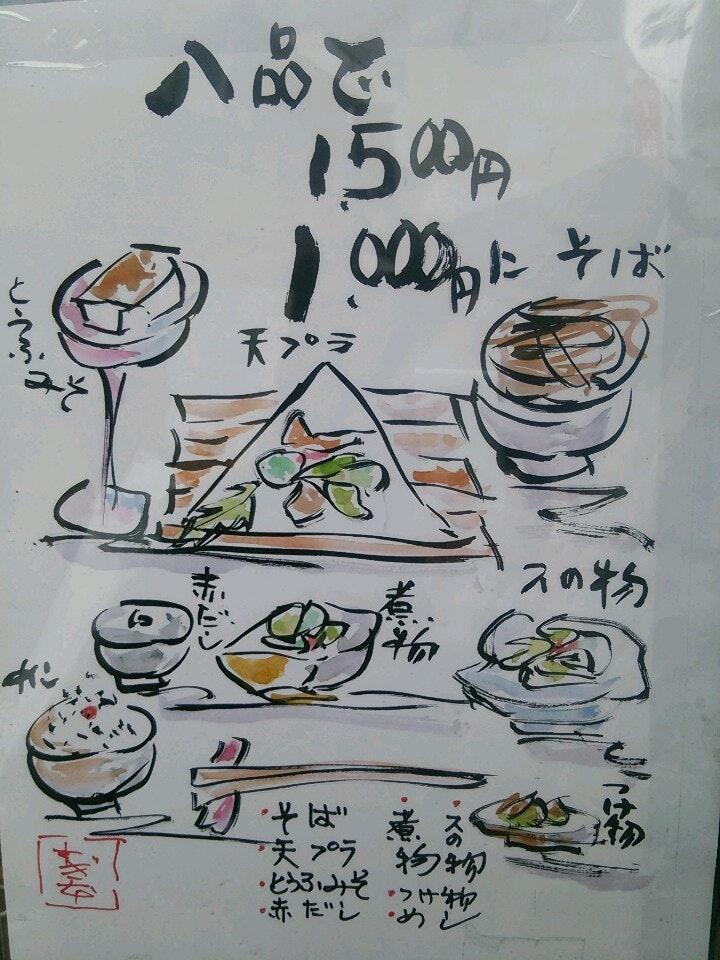 八品で
1500円
1,000円に
そば
とうふみそ
天プラ
赤だし
煮物
スの物
めし
つけ物
・そば
・天プラ
・とうふみそ
・赤だし
・スの物
・煮物
・つけ物
・めし